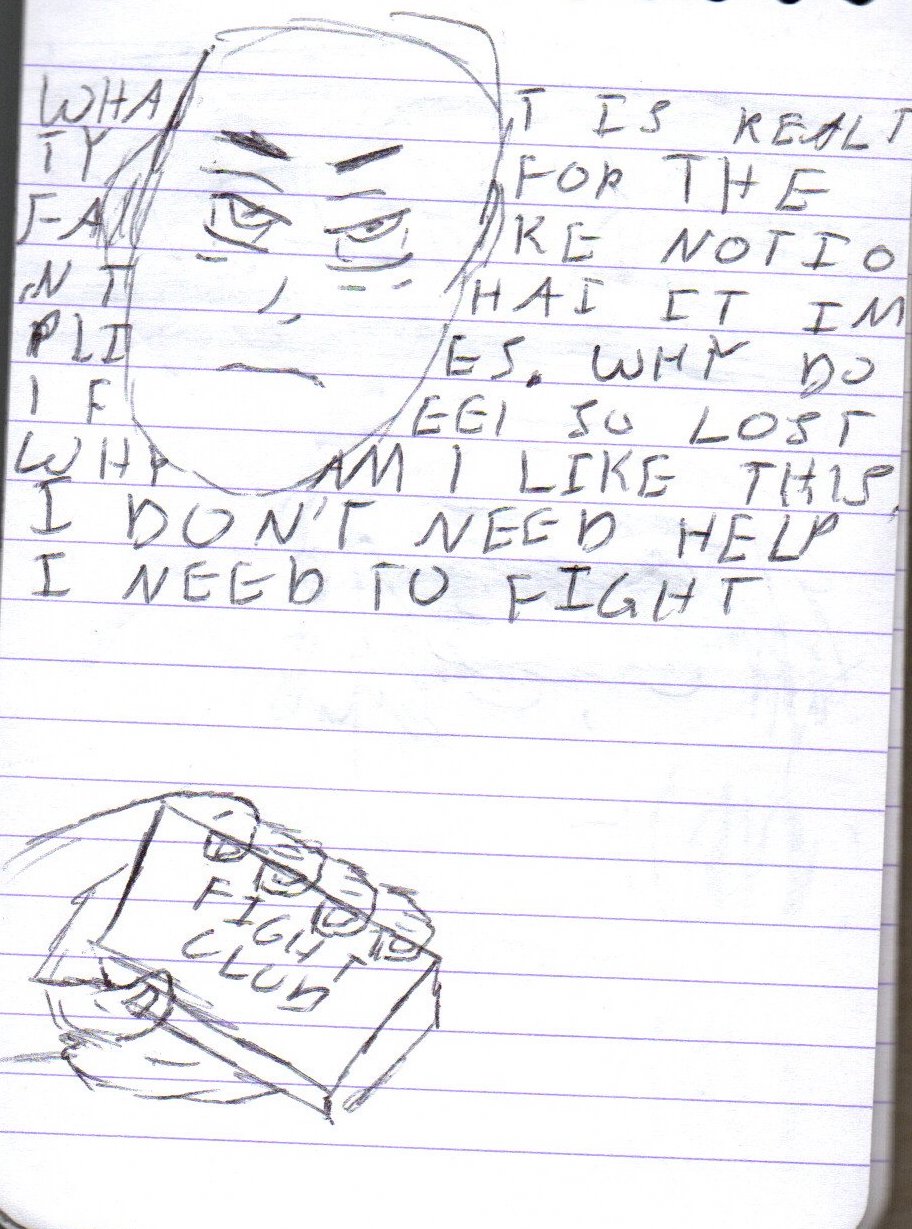 WHAT IS REALI
TY FOR THE
FAKE NOTIO
N THAT IT IM
PLIES. WHY DO
I FEEL SO LOST
WHY AM I LIKE THIS.
I DON'T NEED HELP
I NEED TO FIGHT
FIGHT
CLUB